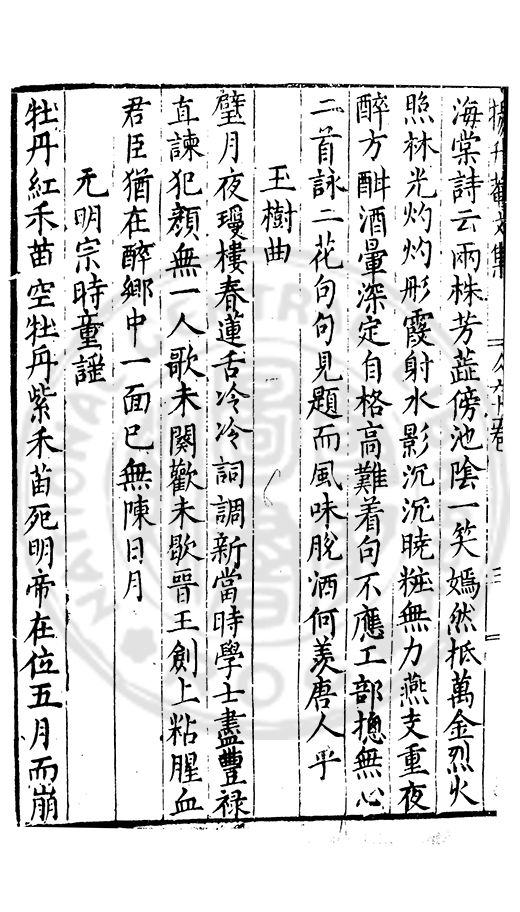 海棠詩云兩株芳蕋傍池陰一笑嫣然抵萬金烈火
照林光灼灼彤霞射水影沉沉曉粧無力燕支重夜
醉方酣酒暈深定自格高難着句不應工部摠無心
二首詠二花句句見題而風味脫洒何羨唐人乎
玉樹曲
璧月夜瓊樓春蓮舌冷冷詞調新當時學士盡豐祿
直諫犯顏無一人歌未闋歡未歇晉王劍上粘腥血
君臣猶在醉鄉中一面已無陳日月
元明宗時童謡
牡丹紅禾苗空牡丹紫禾苗死明帝在位五月而崩